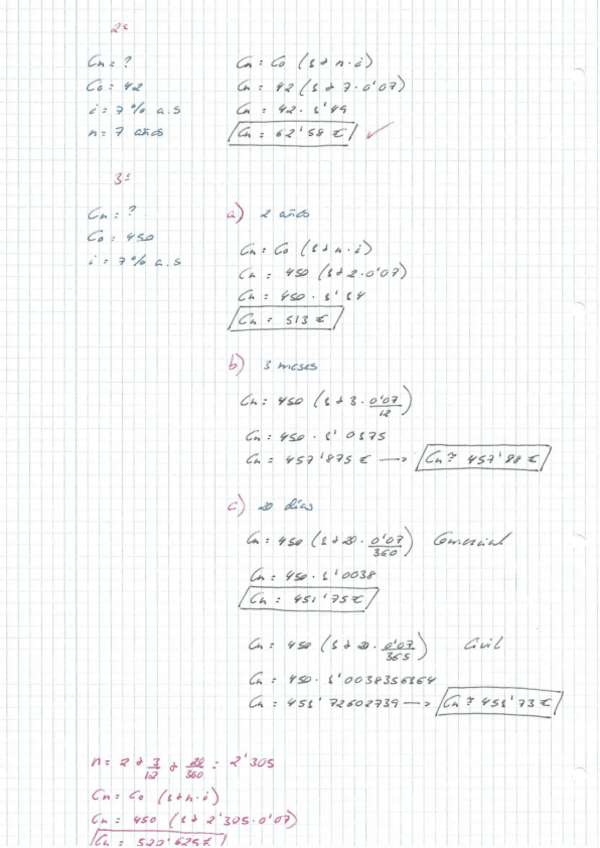 2º
Cn = ?
C0 = 42
i = 7% a.s
n = 7 años
Cn = C0 (1 + n · i)
Cn = 42 (1 + 7 · 0'07)
Cn = 42 · 1'49
Cn = 62'58 €
3º
Cn = ?
C0 = 450
i = 7% a.s
a) 2 años
Cn = C0 (1 + n · i)
Cn = 450 (1 + 2 · 0'07)
Cn = 450 · 1'14
Cn = 513 €
b) 3 meses
Cn = 450 (1 + 3 · 0'07/12)
Cn = 450 · 1'0175
Cn = 457'875 € → Cn ≈ 457'88 €
c) 20 días
Cn = 450 (1 + 20 · 0'07/360) Comercial
Cn = 450 · 1'0038
Cn = 451'75 €
Cn = 450 (1 + 20 · 0'07/365) Civil
Cn = 450 · 1'0038356164
Cn = 451'72602739 → Cn ≈ 451'73 €
n = 2 + 3/12 + 20/360 = 2'305
Cn = C0 (1 + n · i)
Cn = 450 (1 + 2'305 · 0'07)
Cn = 522'625 €